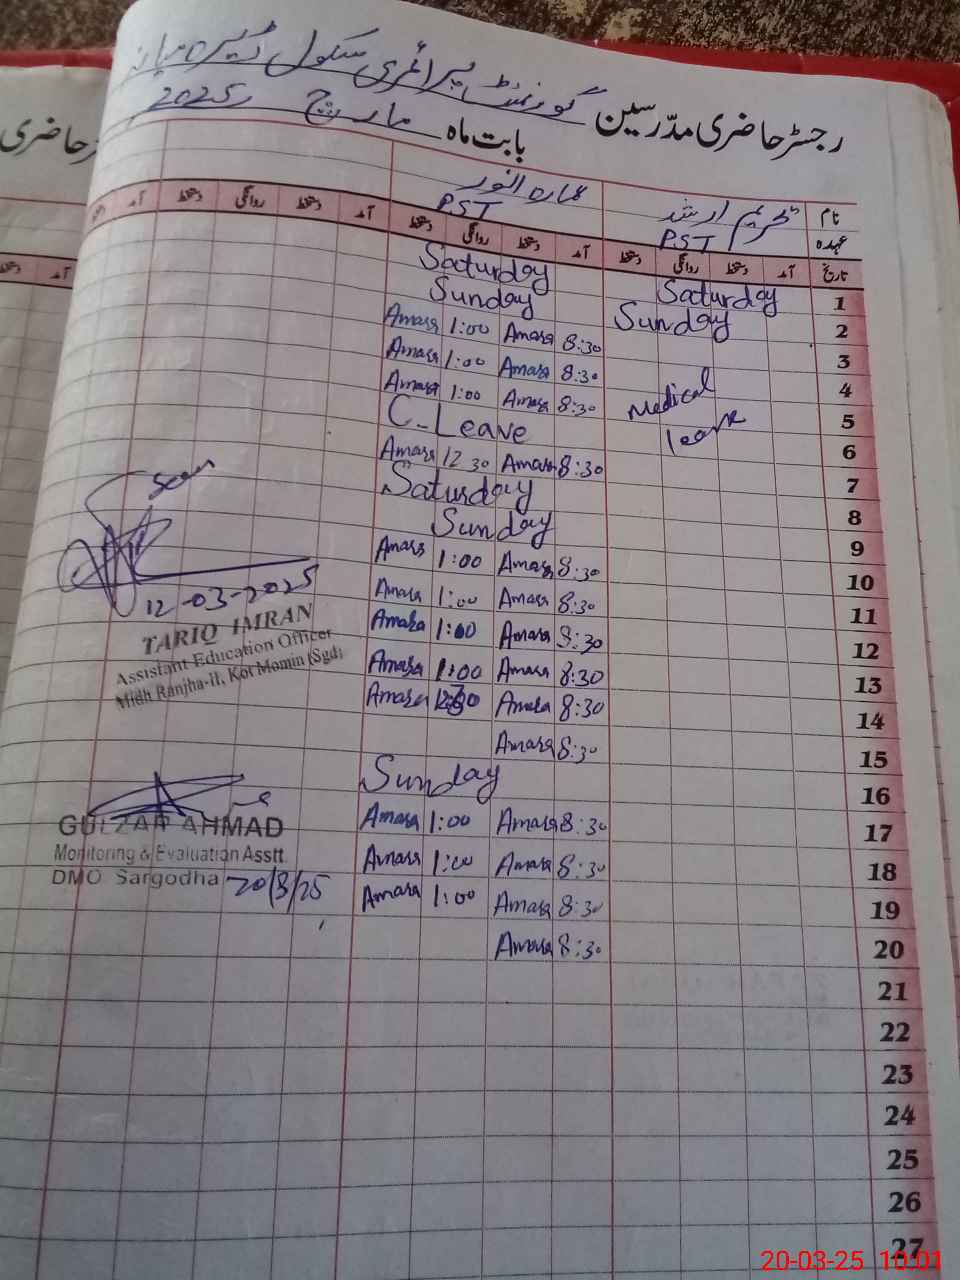 گورنمنٹ پرائمری سکول ڈیرہ میانہ
رجسٹر حاضری مدرسین
بابت ماہ مارچ 2025ء
نام تحریم ارشد عمارہ انور
عہدہ PST PST
تاریخ آمد دستخط روانگی دستخط آمد دستخط روانگی دستخط آمد دستخط روانگی دستخط آمد
1 Saturday Saturday
2 Sunday Sunday
3 Amara 1:00 Amara 8:30
4 Amara 1:00 Amara 8:30
5 Medical Amara 1:00 Amara 8:30
6 leave C-Leave
7 Amara 12 30 Amara 8:30
8 Saturday
9 Sunday
10 Amara 1:00 Amara 8:30
11 Amara 1:00 Amara 8:30
12 Amara 1:00 Amara 8:30
13 Amara 1:00 Amara 8:30
14 Amara Amara 8:30
15 Amara 8:30
16 Sunday
17 Amara 1:00 Amara 8:30
18 Amara 1:00 Amara 8:30
19 Amara 1:00 Amara 8:30
20 Amara 8:30
21
22
23
24
25
26
27
Seen
12-03-2025
TARIQ IMRAN
Assistant Education Officer
Midh Ranjha-II, Kot Momin (Sgd)
GULZAR AHMAD
Monitoring & Evaluation Asstt.
DMO Sargodha 20/3/25
حاضری
20-03-25 10:01